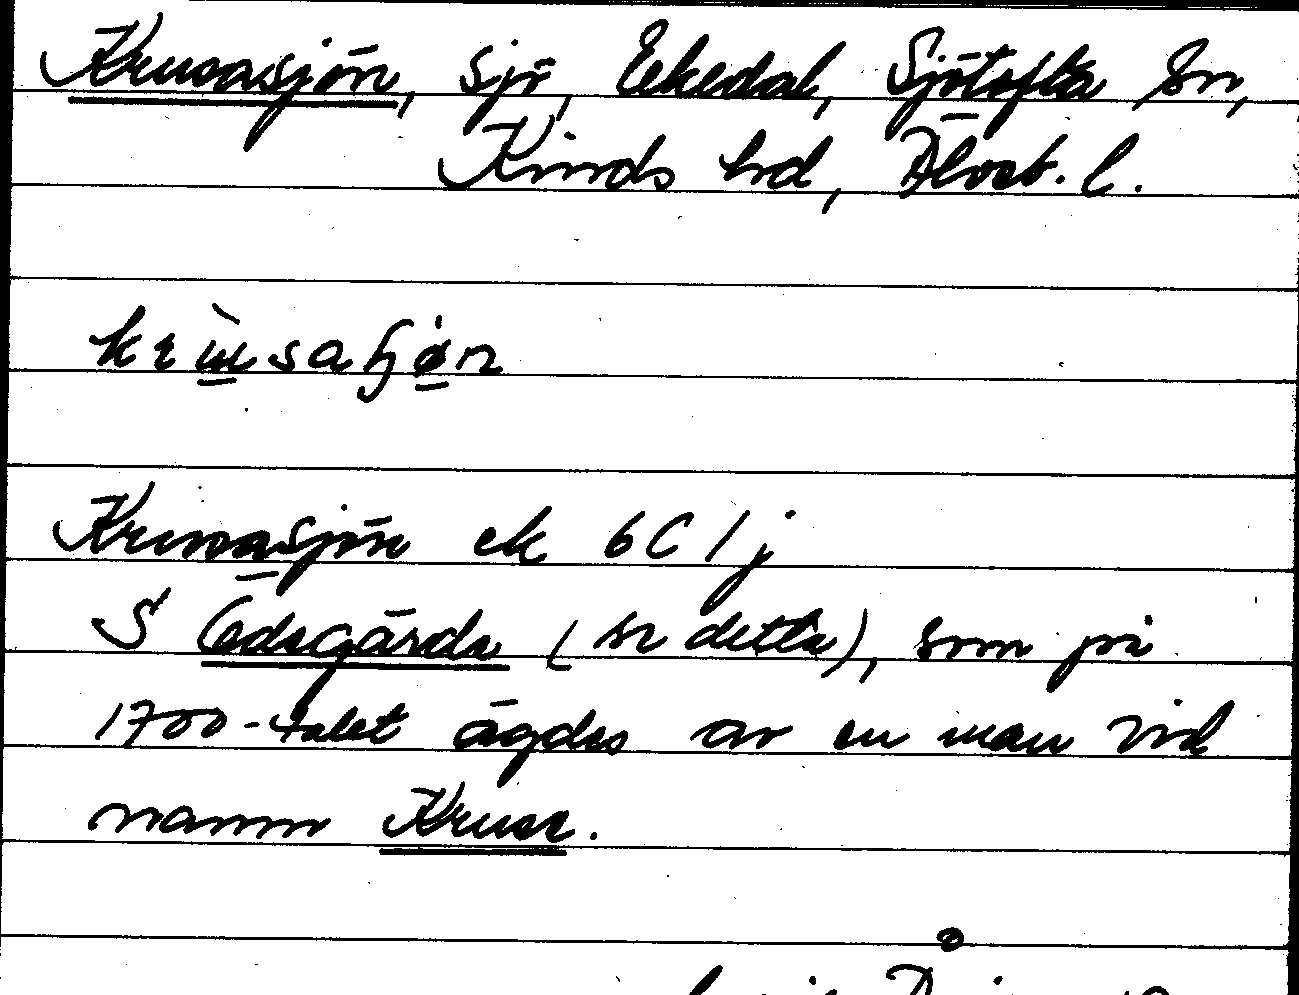 Krusasjön, sjö, Ekedal, Sjötofta sn,
Kinds hd, Älvsb. l.
Krusasjön ek 6C 1j
S Ödegärde (se detta), som på
1700-talet ägdes av en man vid
namn Kruse.